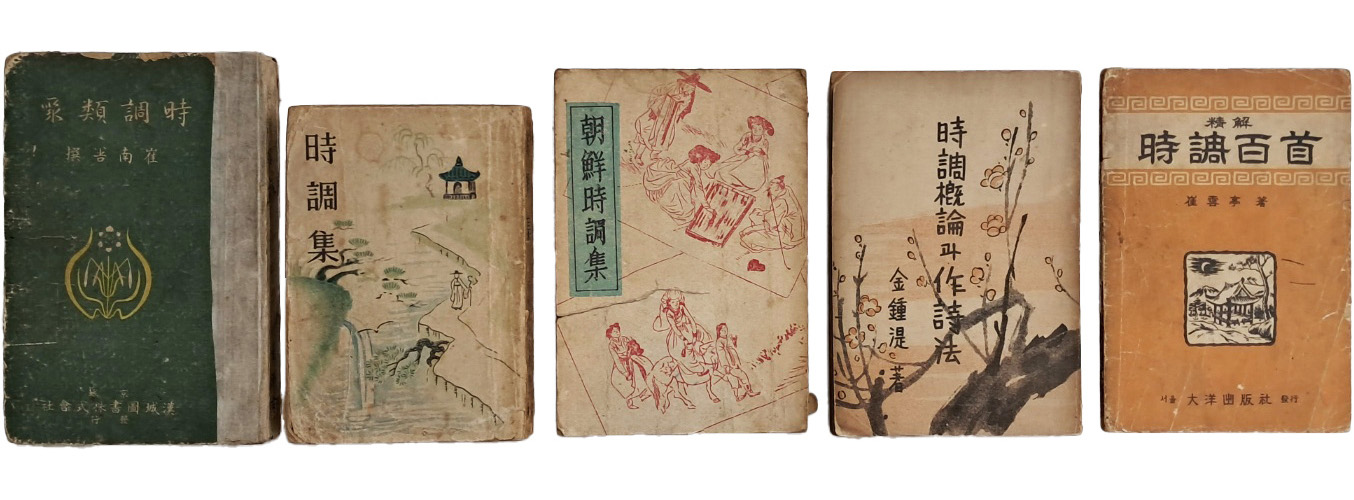 時調類聚
崔南善 撰
漢城圖書株式會社
時調集
朝鮮時調集
時調槪論과作詩法
金鍾湜 著
精解
時調百首
崔雲亭 著
서울 大洋出版社 發行